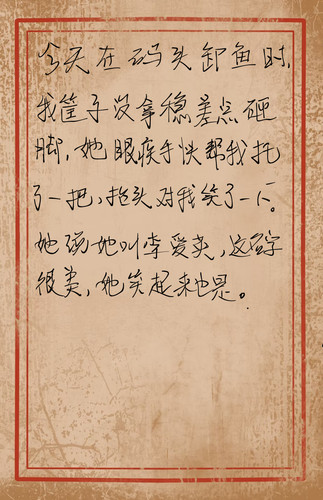 今天在码头卸鱼时,
我筐子没拿稳差点砸
脚,她眼疾手快帮我托
了一把,抬头对我笑了一下。
她说她叫李爱英,这名字
很美,她笑起来也是。